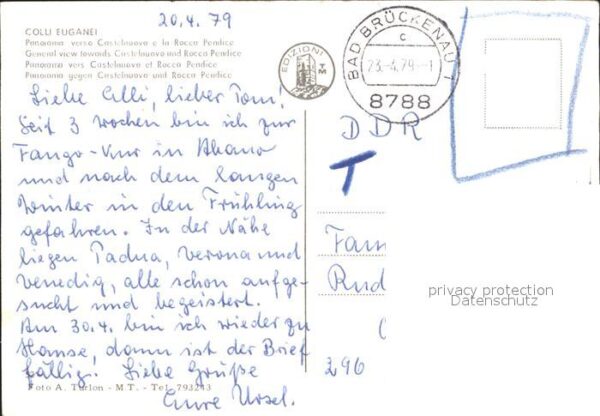 20.4.79
COLLI EUGANEI
Panorama verso Castelnuovo e la Rocca Pendice
General view towards Castelnuovo and Rocca Pendice
Panorama vers Castelnuovo et Rocca Pendice
Panorama gegen Castelnuovo und Rocca Pendice
EDIZIONI TM
BAD BRÜCKENAU 1
c
23.-4.79.-1
8788
Liebe Cilli, lieber Tom!
Seit 3 Wochen bin ich zur
Fango-Kur in Abano
und nach dem langen
Winter in den Frühling
gefahren. In der Nähe
liegen Padua, Verona und
Venedig, alle schon aufge-
sucht und begeistert.
Am 30.4. bin ich wieder zu
Hause, dann ist der Brief
fällig. Liebe Grüße
Eure Ursel.
Foto A. Turlon - M T. - Tel. 793243
DDR
T
Fam
Rud
296
privacy protection
Datenschutz